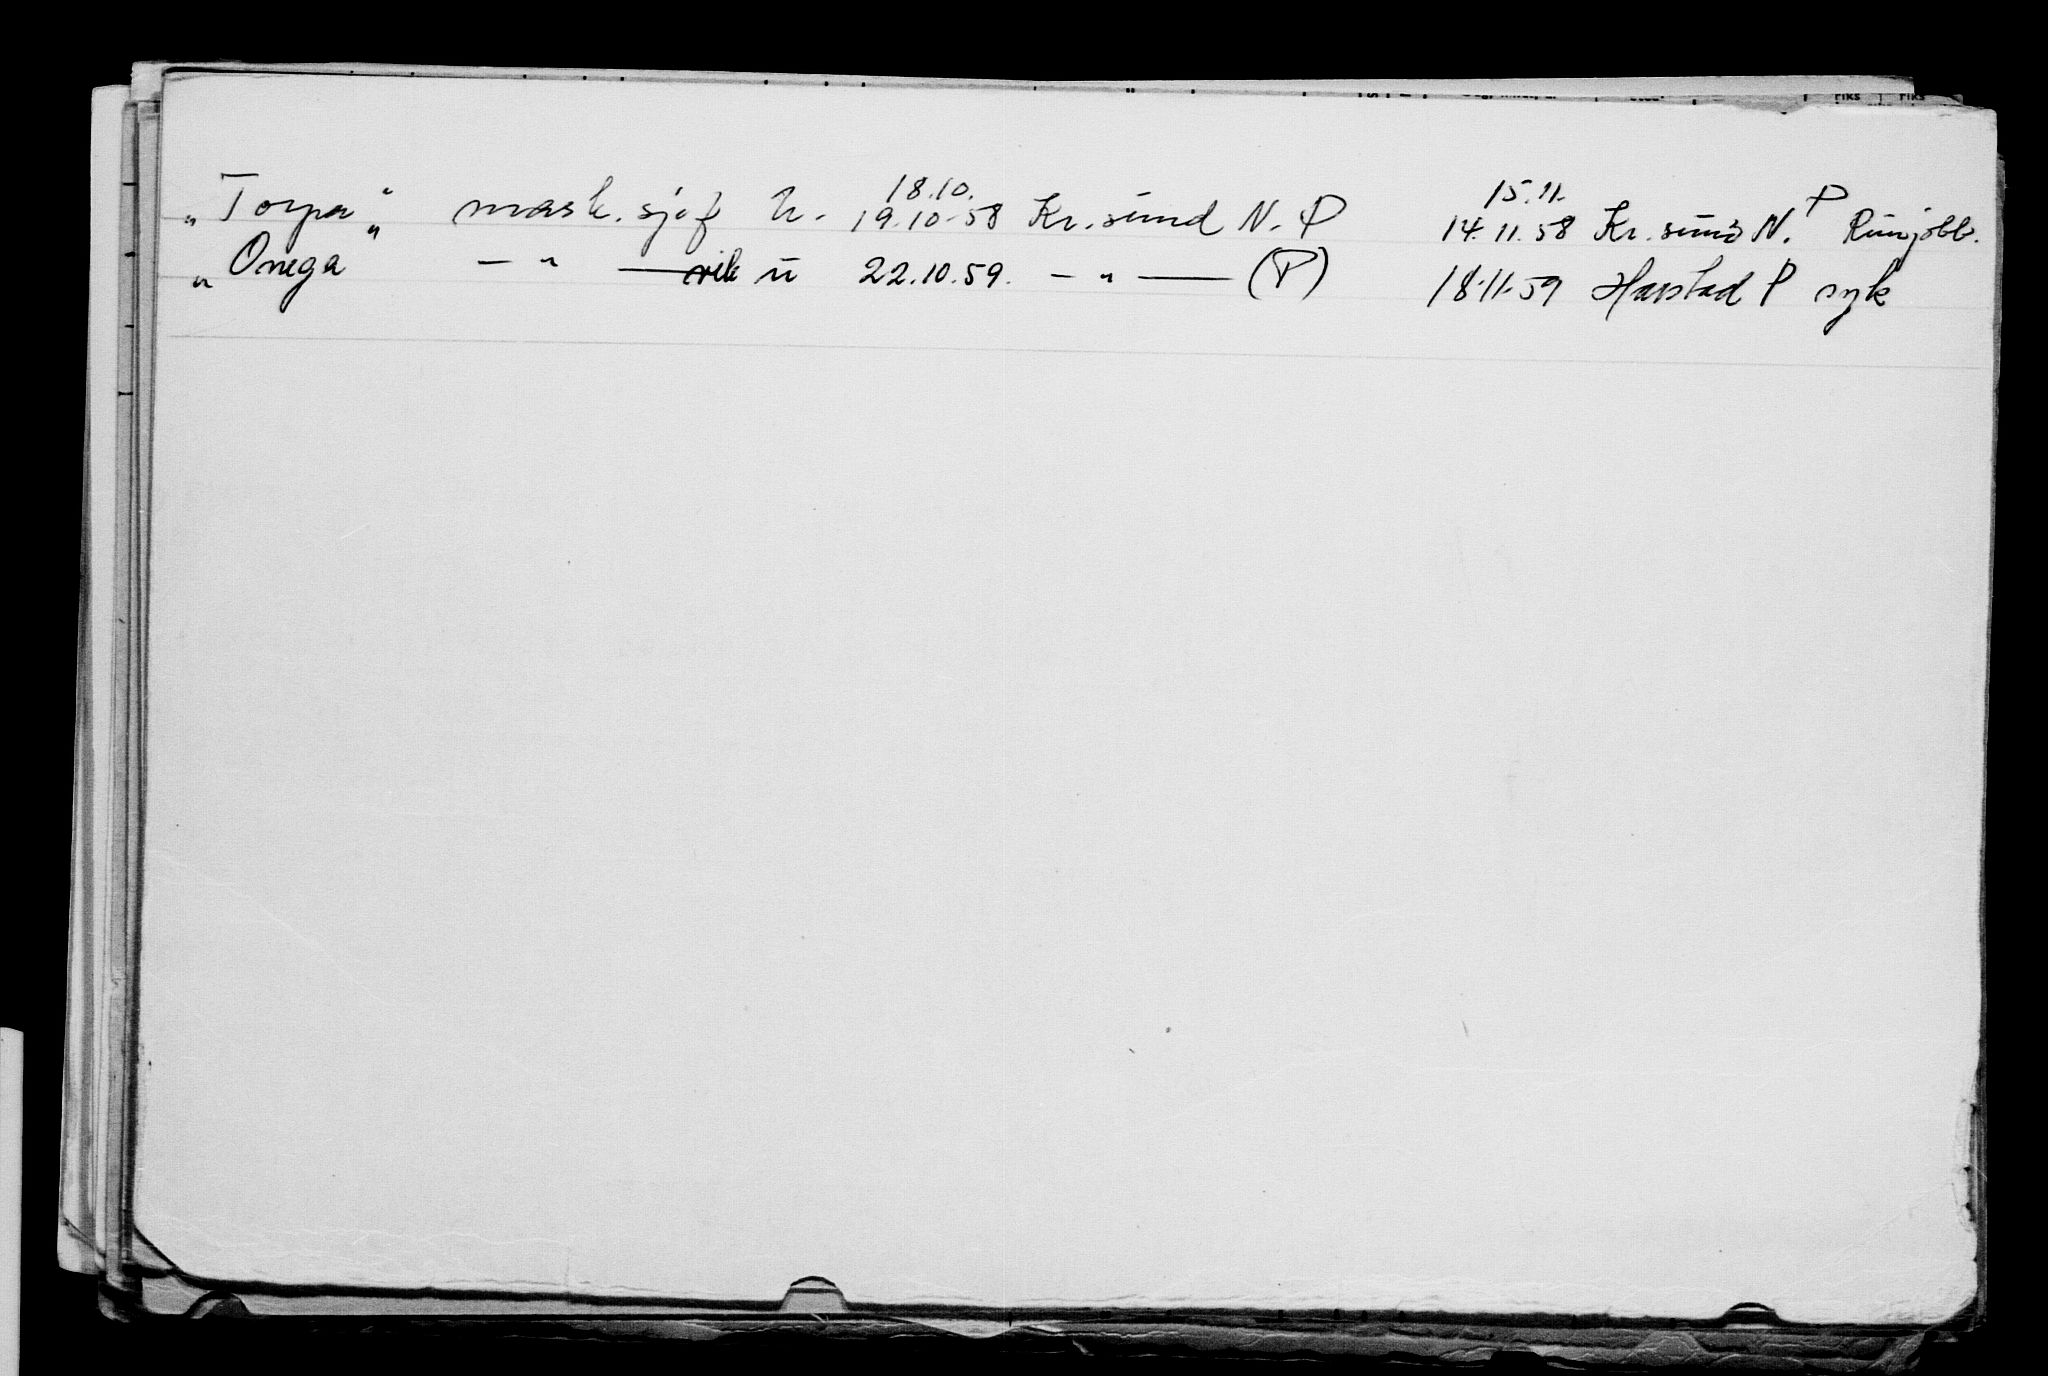 18.10. 15.11. P
„Torpa" mask. sjef u. 19.10-58 Kr. sund N. P 14.11.58 Kr. sund N. Runjobb.
„Onega" — " — vik u 22.10.59. — " — (P) 18.11.59 Harstad P syk